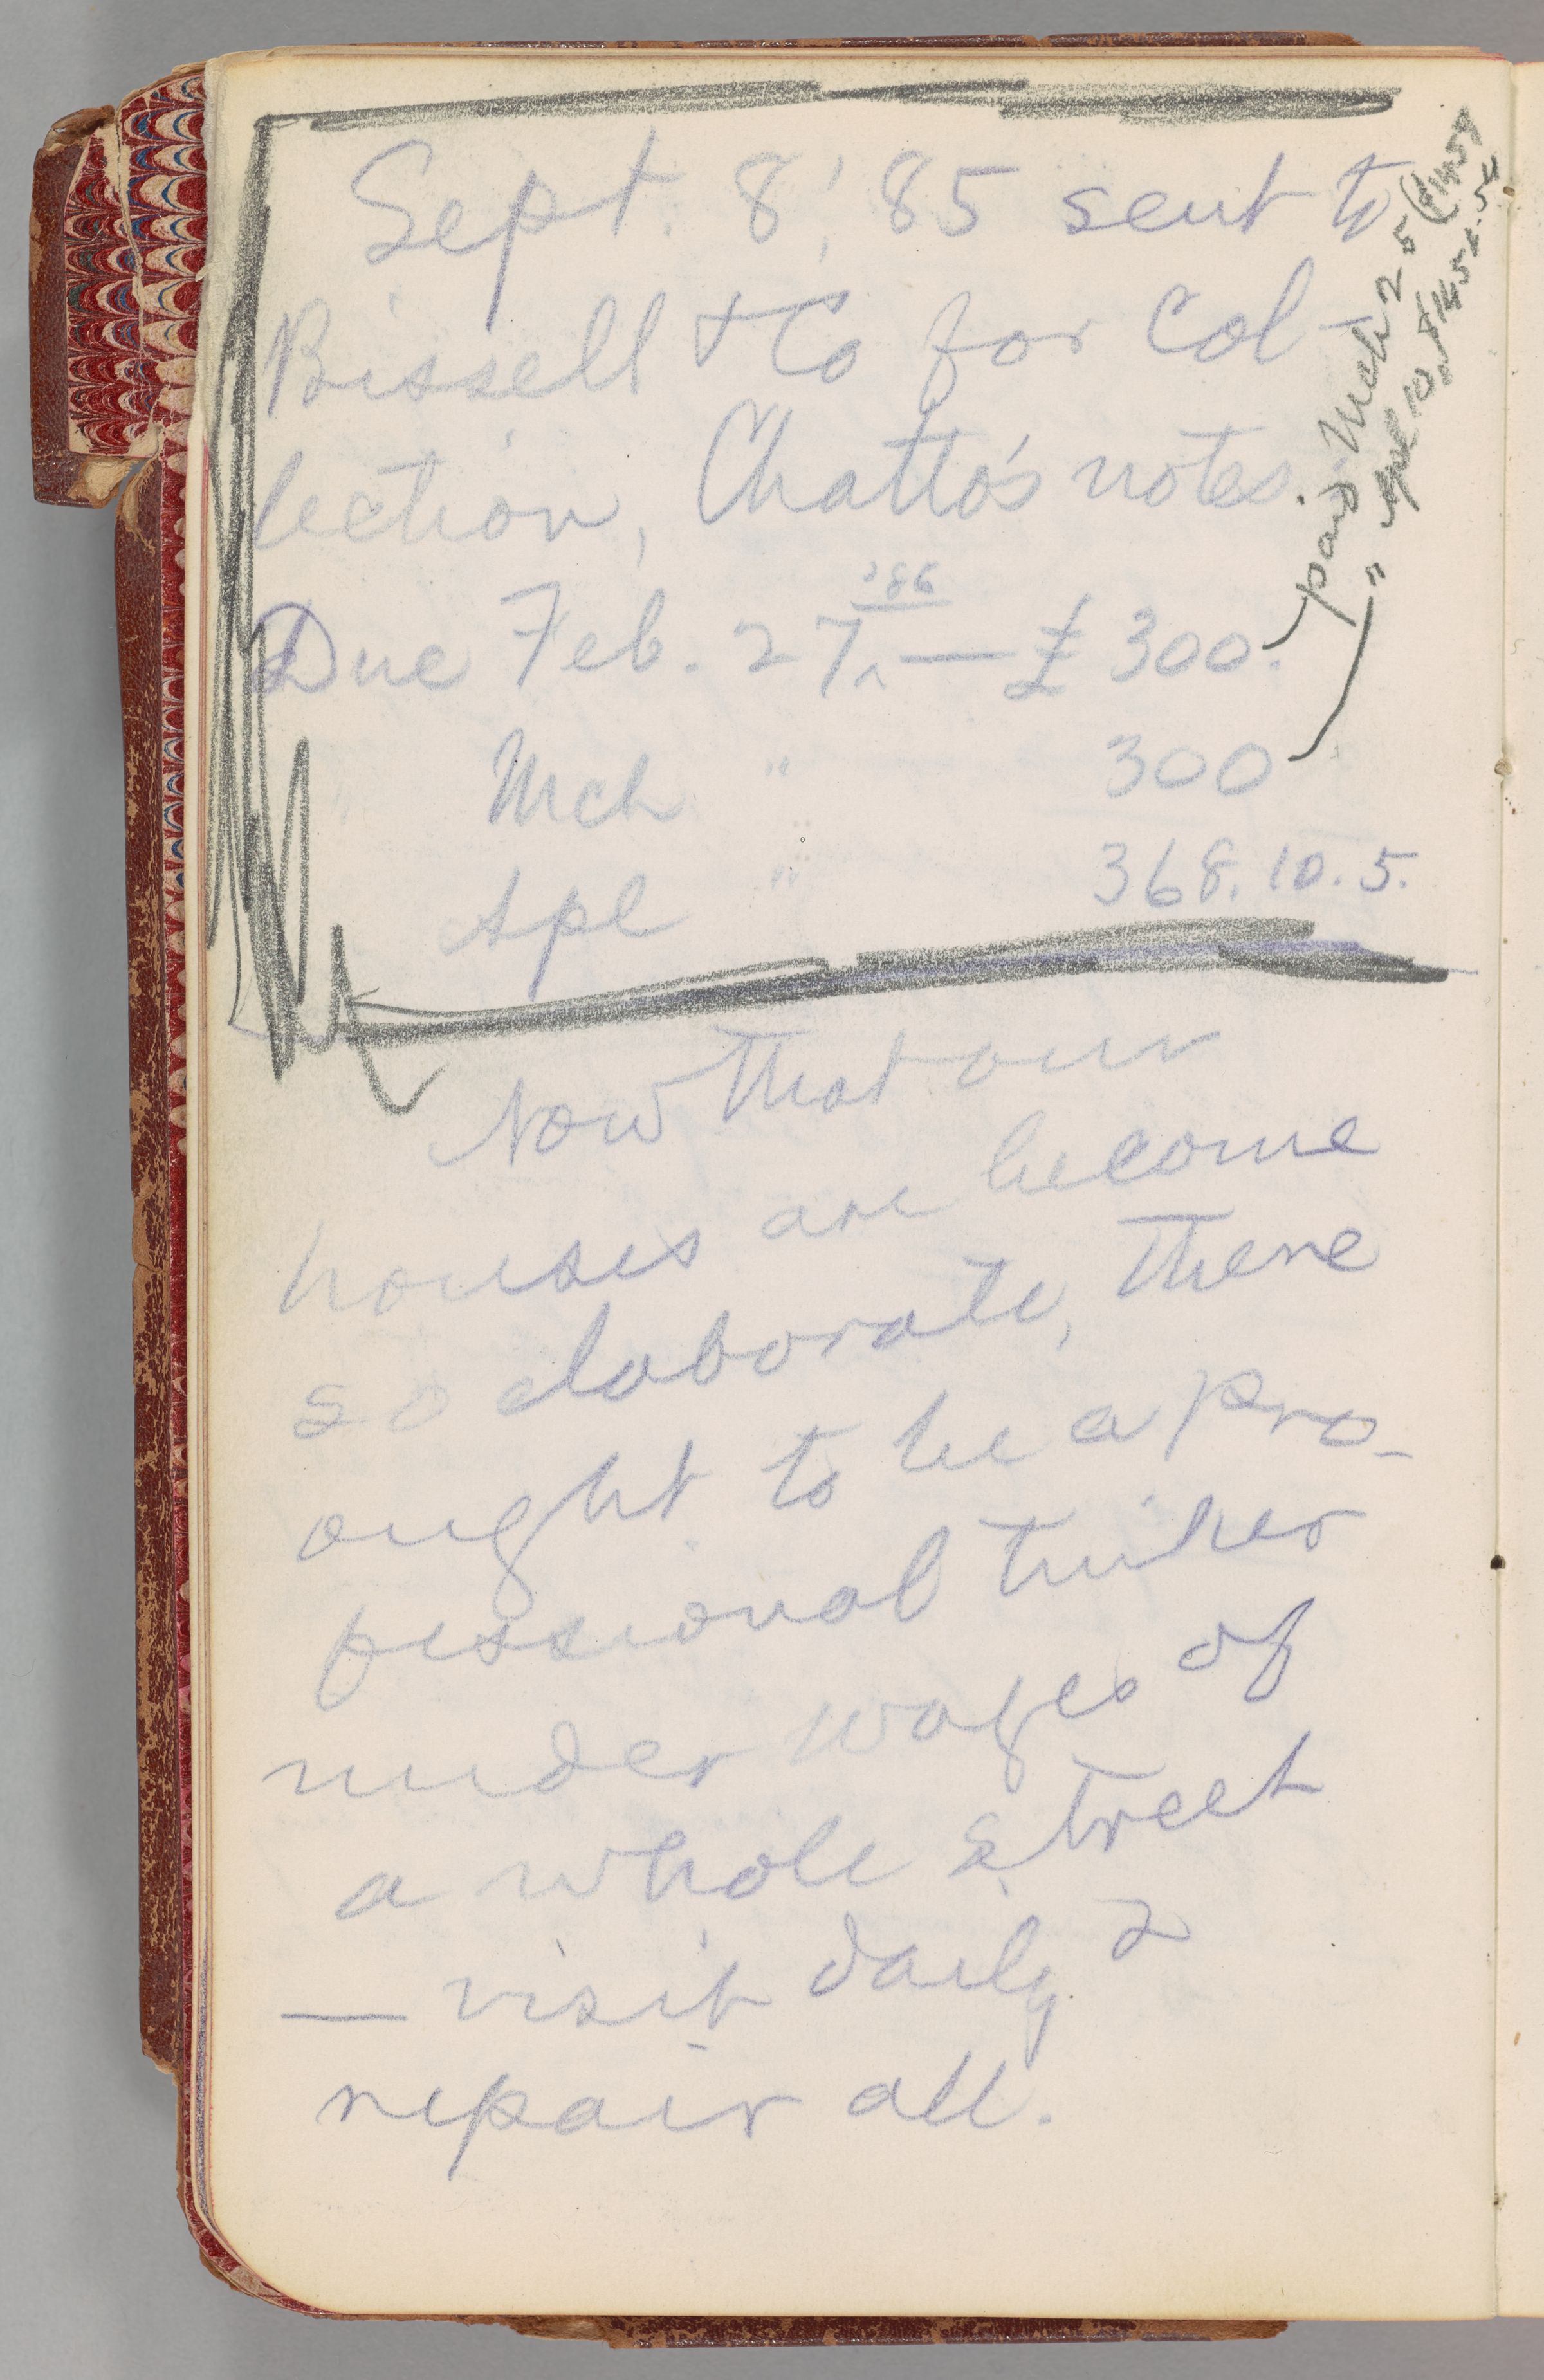 Sept. 8, '85 sent to
Bissell & Co for Col-
lection, Chatto's notes.
Due Feb. 27, '86 — £300.
" Mch " 300
Apl " 368.10.5.
paid Mch 25
" Apl 10,
Now that our
houses are become
so elaborate, there
ought to be a pro-
fessional tinker
under wages of
a whole street
— visit daily &
repair all.